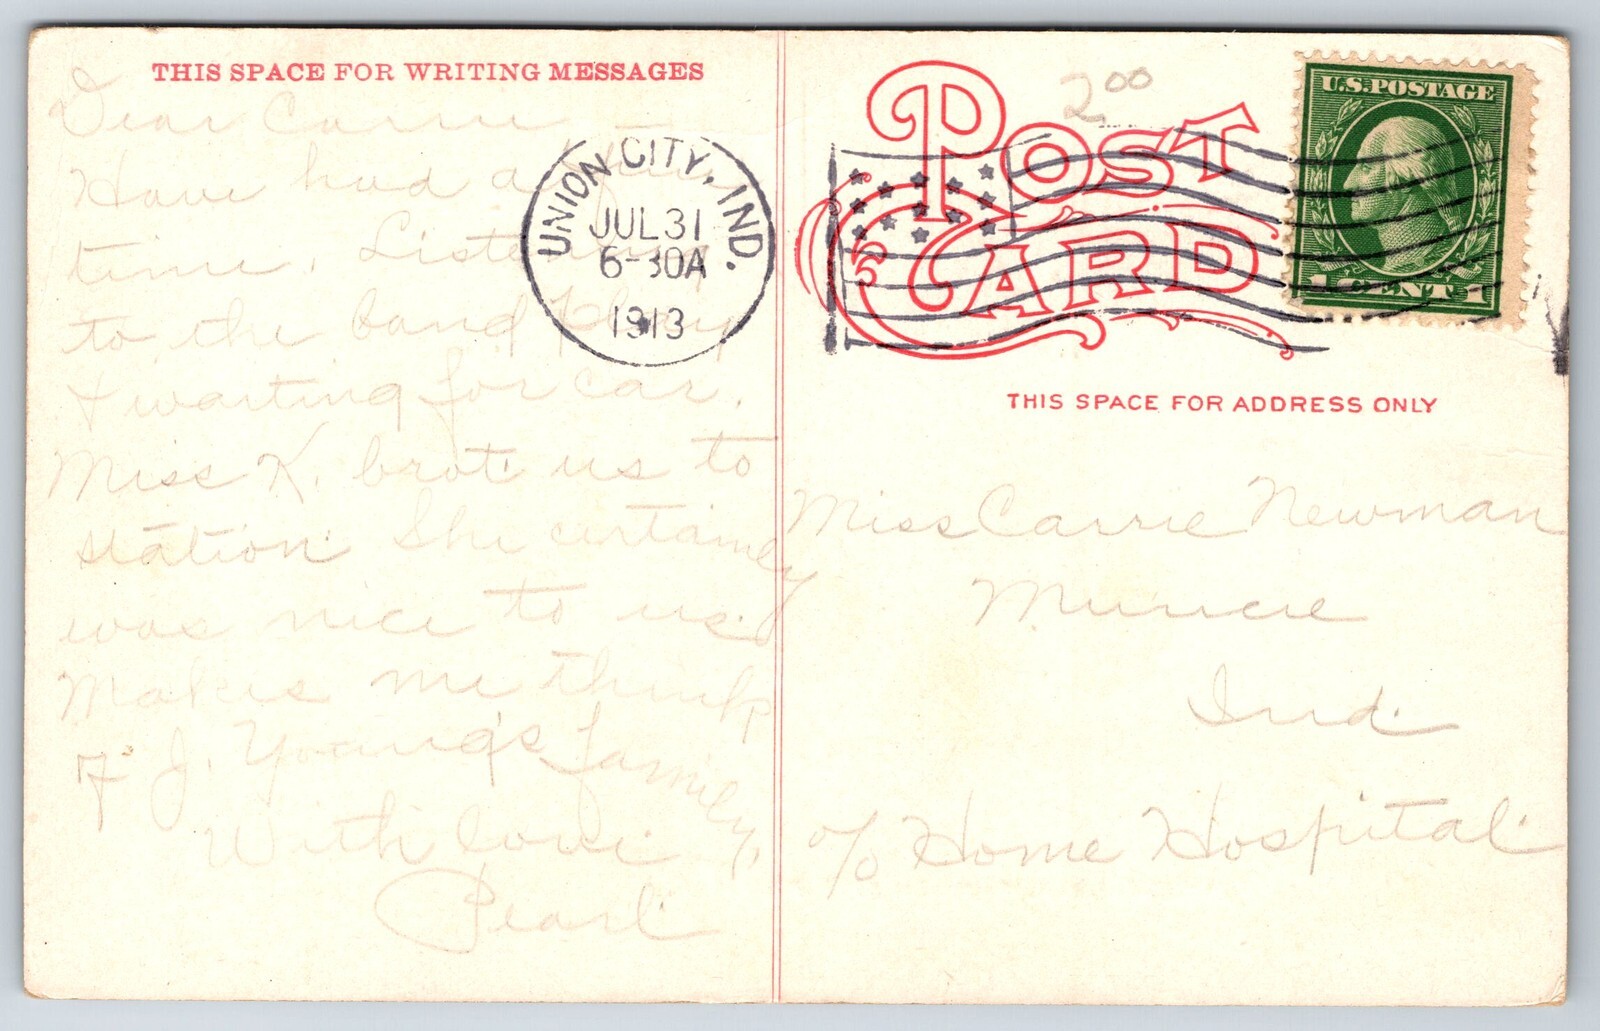 THIS SPACE FOR WRITING MESSAGES
Dear Carrie —
Have had a
time. Listening
to the band play
& waiting for car.
Miss K. brot us to
station. She certainly
was nice to us.
Makes me think
of J. Young's family.
With love
Pearl.
UNION CITY, IND.
JUL 31
6-30A
1913
2.00
POST CARD
U.S. POSTAGE
1 CENT 1
THIS SPACE FOR ADDRESS ONLY
Miss Carrie Newman
Muncie
Ind.
c/o Home Hospital.